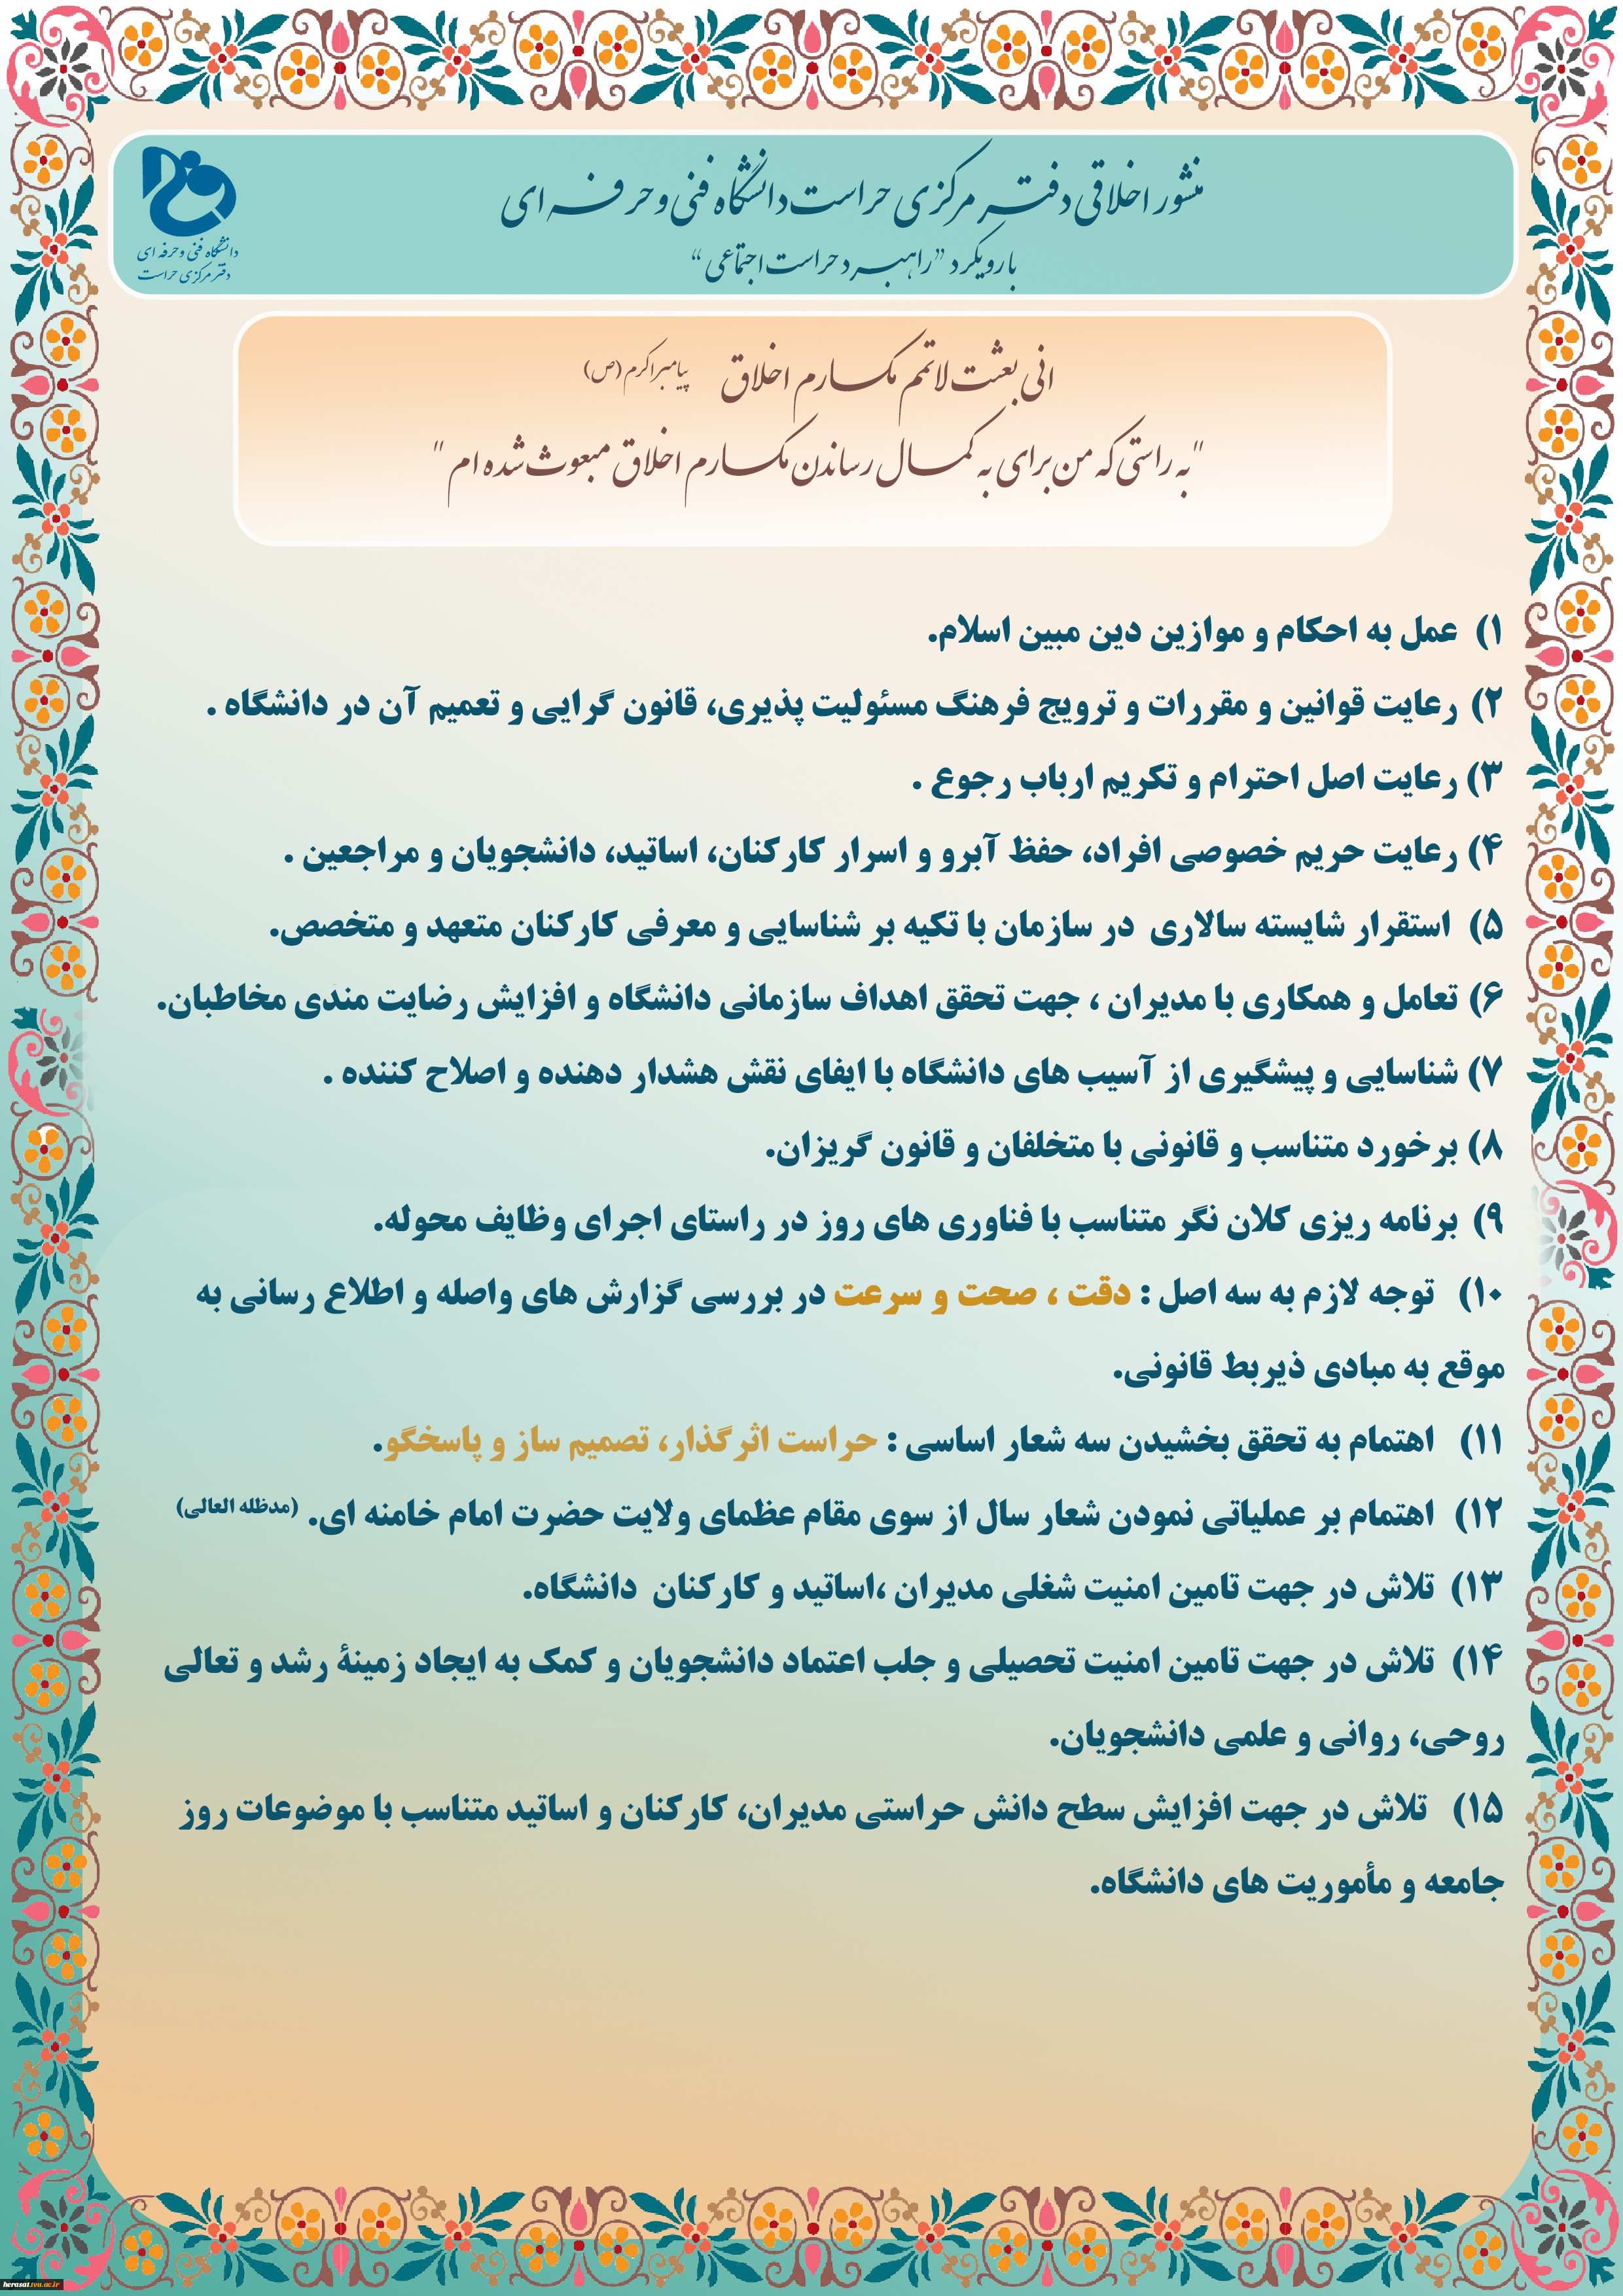 منشور اخلاقی دفتر مرکزی حراست دانشگاه فنی و حرفه ای
با رویکرد "راهبرد حراست اجتماعی"
دانشگاه فنی و حرفه ای
دفتر مرکزی حراست
انی بعثت لاتمم مکارم اخلاق پیامبر اکرم (ص)
"به راستی که من برای به کمال رساندن مکارم اخلاق مبعوث شده ام"
۱) عمل به احکام و موازین دین مبین اسلام.
۲) رعایت قوانین و مقررات و ترویج فرهنگ مسئولیت پذیری، قانون گرایی و تعمیم آن در دانشگاه .
۳) رعایت اصل احترام و تکریم ارباب رجوع .
۴) رعایت حریم خصوصی افراد، حفظ آبرو و اسرار کارکنان، اساتید، دانشجویان و مراجعین .
۵) استقرار شایسته سالاری در سازمان با تکیه بر شناسایی و معرفی کارکنان متعهد و متخصص.
۶) تعامل و همکاری با مدیران ، جهت تحقق اهداف سازمانی دانشگاه و افزایش رضایت مندی مخاطبان.
۷) شناسایی و پیشگیری از آسیب های دانشگاه با ایفای نقش هشدار دهنده و اصلاح کننده .
۸) برخورد متناسب و قانونی با متخلفان و قانون گریزان.
۹) برنامه ریزی کلان نگر متناسب با فناوری های روز در راستای اجرای وظایف محوله.
۱۰) توجه لازم به سه اصل : دقت ، صحت و سرعت در بررسی گزارش های واصله و اطلاع رسانی به
موقع به مبادی ذیربط قانونی.
۱۱) اهتمام به تحقق بخشیدن سه شعار اساسی : حراست اثرگذار، تصمیم ساز و پاسخگو.
۱۲) اهتمام بر عملیاتی نمودن شعار سال از سوی مقام عظمای ولایت حضرت امام خامنه ای. (مدظله العالی)
۱۳) تلاش در جهت تامین امنیت شغلی مدیران ،اساتید و کارکنان دانشگاه.
۱۴) تلاش در جهت تامین امنیت تحصیلی و جلب اعتماد دانشجویان و کمک به ایجاد زمینهٔ رشد و تعالی
روحی، روانی و علمی دانشجویان.
۱۵) تلاش در جهت افزایش سطح دانش حراستی مدیران، کارکنان و اساتید متناسب با موضوعات روز
جامعه و مأموریت های دانشگاه.
herasat.tvu.ac.ir